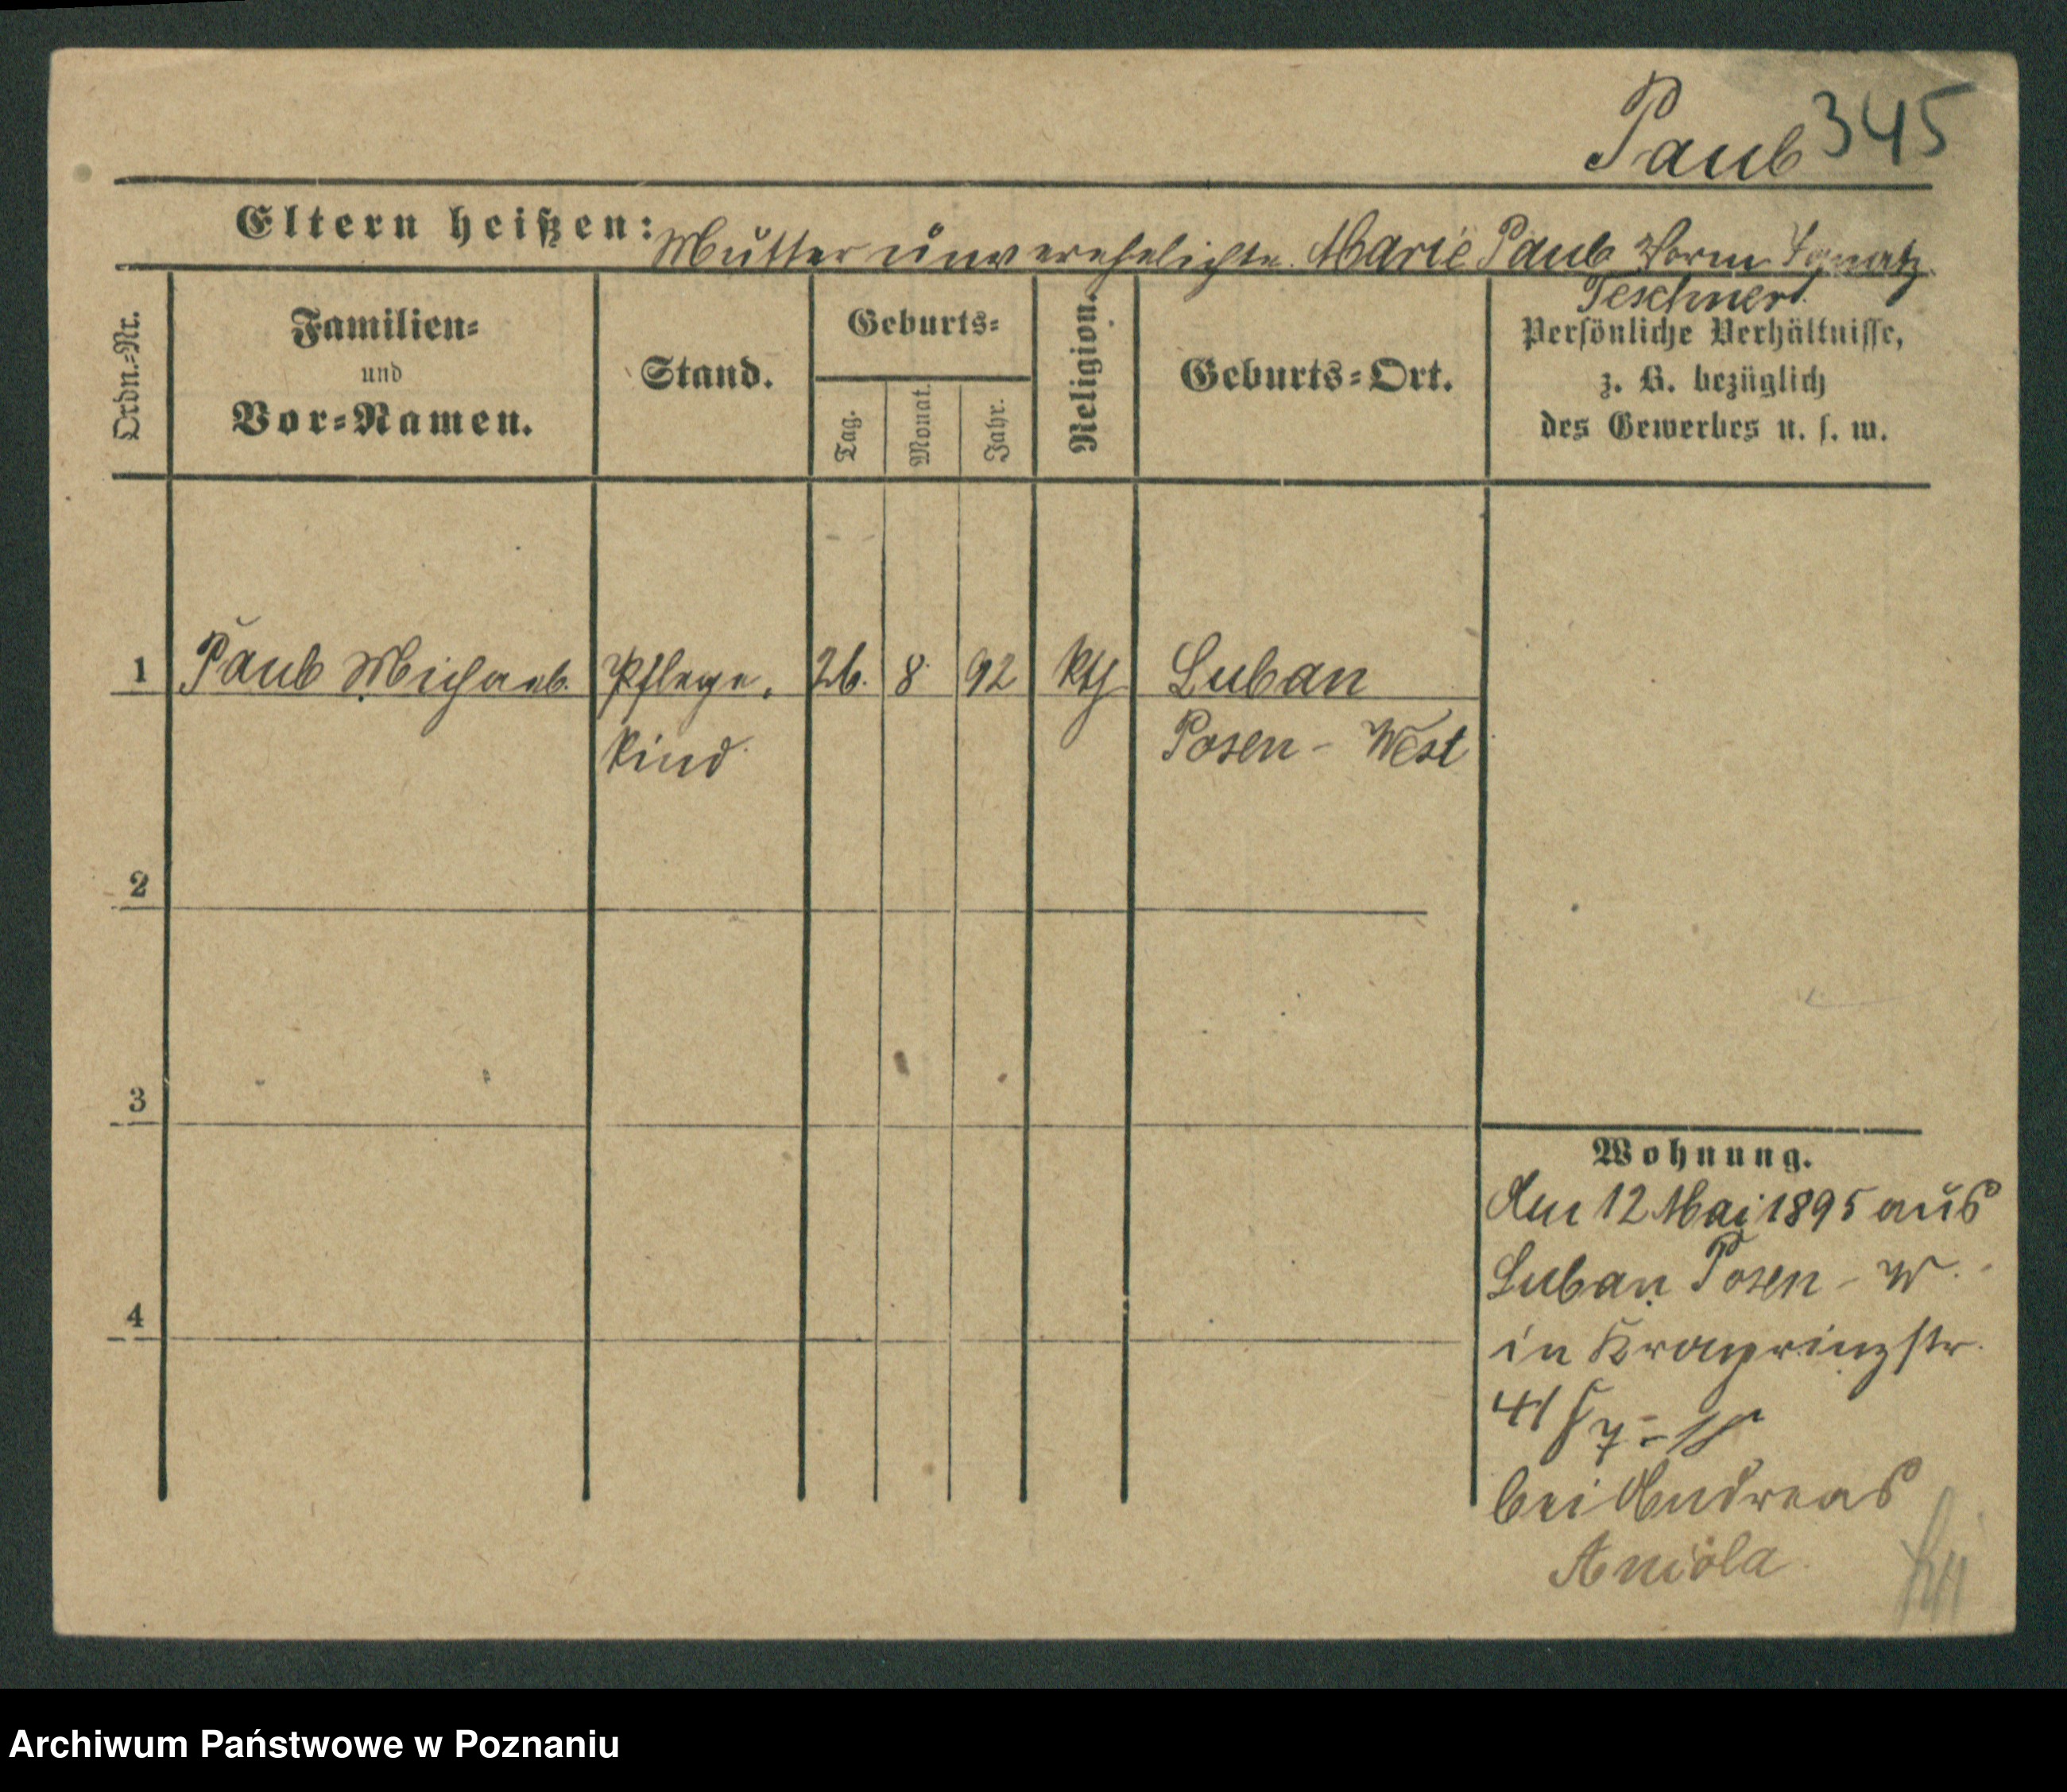 Paul 345
Eltern heißen: Mutter unverehelichte Marie Paul Vorm. Ignatz
Teschner
Ordn.-Nr.
Familien-
und
Vor-Namen.
Stand.
Geburts-
Tag.
Monat.
Jahr.
Religion.
Geburts-Ort.
Persönliche Verhältnisse,
z. B. bezüglich
des Gewerbes u. s. w.
1 Paul Michael. Pflege- 26. 8. 92 kth Luban
kind Posen - West
2
3
4
Wohnung.
Am 12 Mai 1895 aus
Luban Posen - W.
in Kronprinzstr.
bei Andreas
Aniola
Archiwum Państwowe w Poznaniu